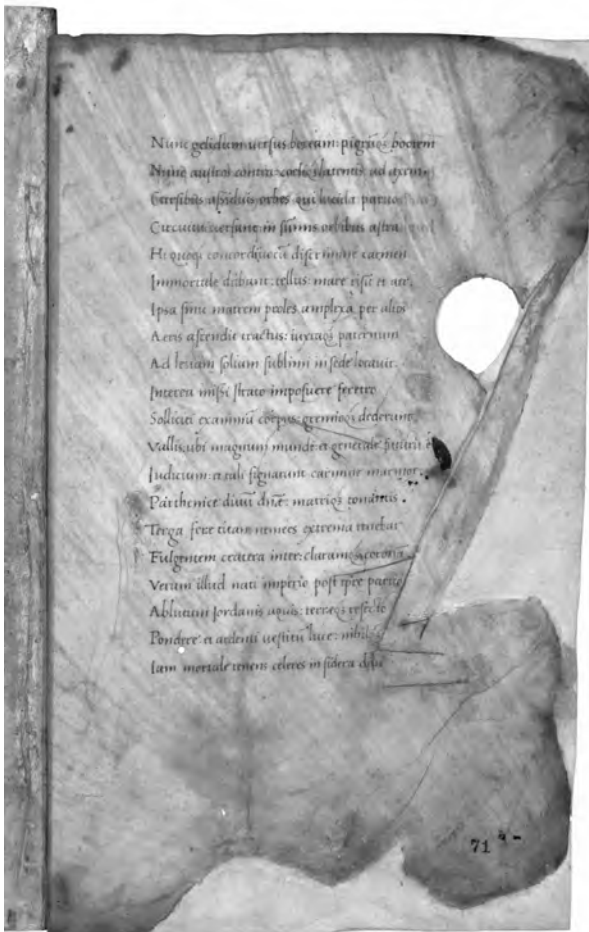 Nunc gelidum uersus boream: pigrūq; booten
Nunc austros contra: coeliq; latentis ad axem
Cursibus assiduis orbes qui lucida paruos
Circuitus uersant in sūmis orbibus astra
Hi quoq; concordi uocū discrimine carmen
Immortale dabant: tellus: mare risit et aer.
Ipsa sinu matrem proles amplexa per altos
Aeris ascendit tractus: iuxtaq; paternum
Ad leuam solium sublimi in sede locauit.
Interea missi strato imposuere feretro
Solliciti exanimū corpus: gremioq; dederunt
Vallis, ubi magnum mundi et generale futurū
Iudicium: et tali signarunt carmine marmor.
Parthenice diuū dn̄ē: matrisq; tonantis.
Terga fere titan nemees extrema tenebat
Fulgentem cratera inter: claramq; corona
Verum illud nati imperio post tempore paruo
Ablutum Jordanis aquis: terreq; refecto
Pondere et ardenti uestitū luce: nihilq;
Iam mortale tenens celeres in sidera
71